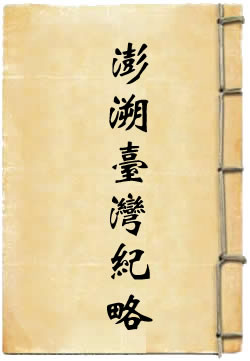 澎溯臺灣紀略